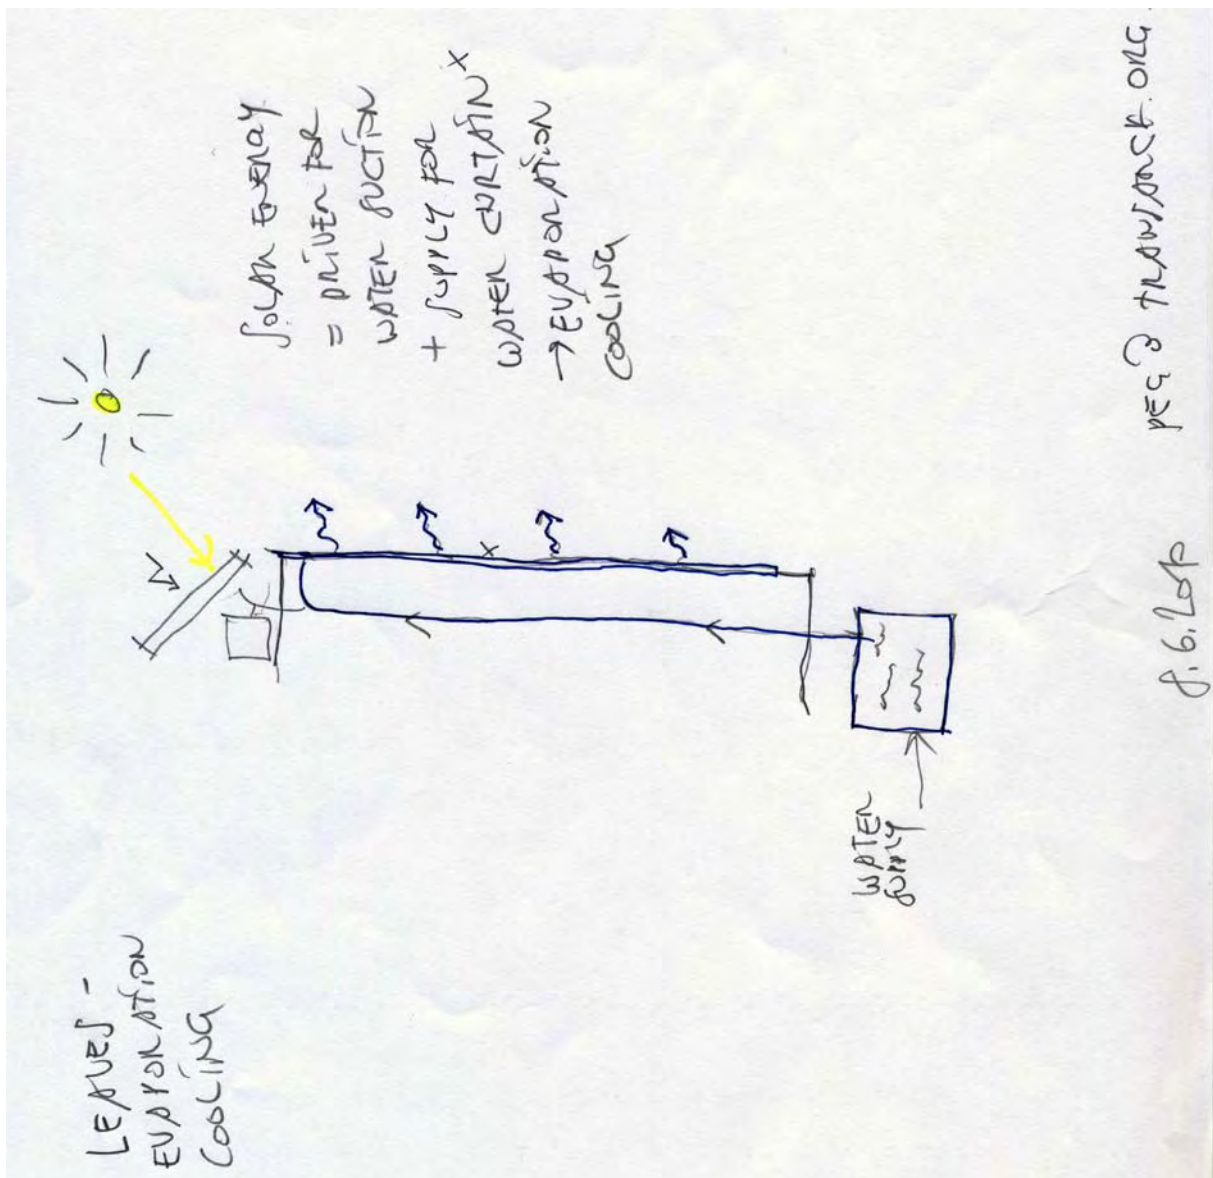 LEAVES -
EVAPORATION
COOLING
SOLAR ENERGY
= DRIVER FOR
WATER SUCTION
+ SUPPLY FOR
WATER CURTAIN x
→ EVAPORATION
COOLING
x
WATER
SUPPLY